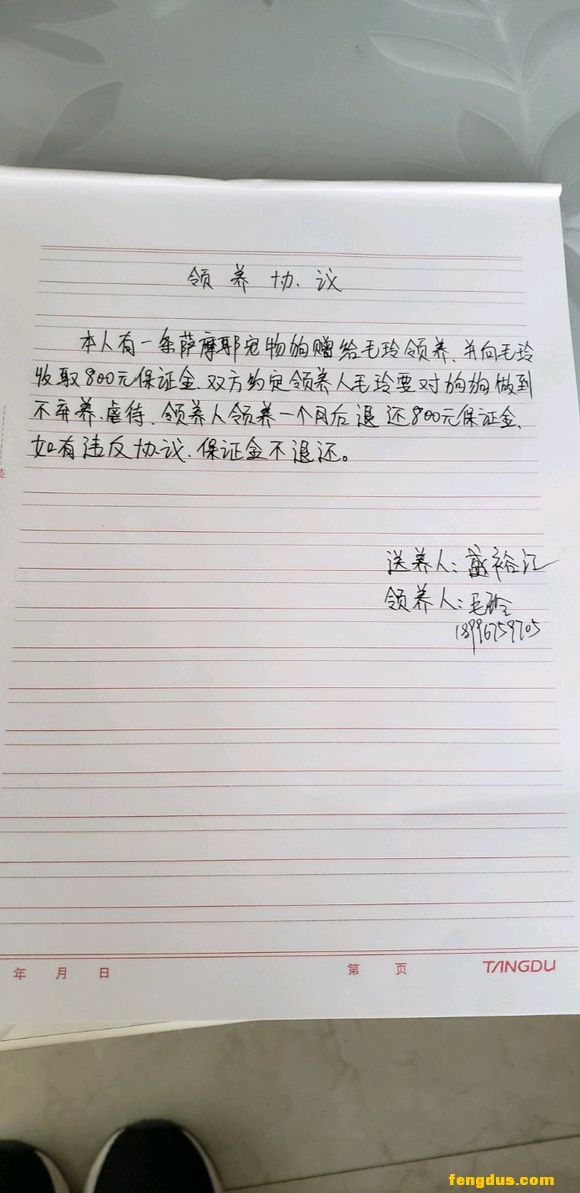 领养协议
本人有一条萨摩耶宠物狗赠给毛玲领养、并向毛玲
收取800元保证金、双方约定领养人毛玲要对狗狗做到
不弃养、虐待、领养人领养一个月后退还800元保证金、
如有违反协议、保证金不退还。
送养人：戴裕江
领养人：毛玲
18996759705
年 月 日 第 页 TANGDU
fengdus.com